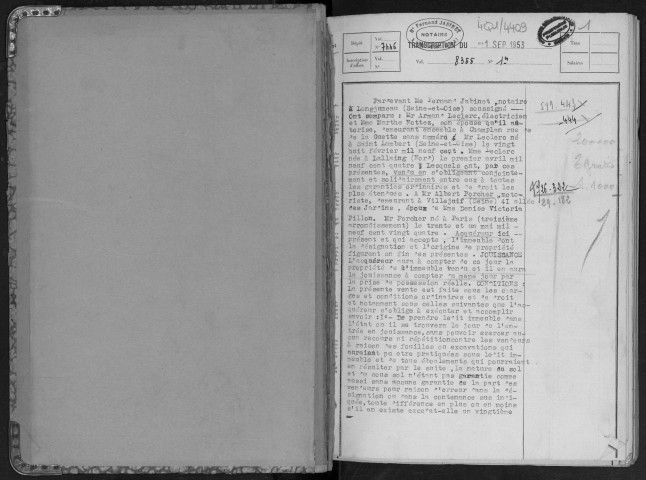 Me Fernand JABINET
NOTAIRE
4Q1/4409
1
Dépôt
Vol.
N° 7446
TRANSCRIPTION DU
-9 SEP 1953
Taxe
Inscription d'office
Vol.
N°
Vol. 8355 N° 1
Salaires
Pardevant Me Fernand Jabinet, notaire
à Longjumeau (Seine-et-Oise) soussigné -
Ont comparu : Mr Armand Leclerc, électricien
et Mme Marthe Pottez, son épouse qu'il au-
torise, demeurant ensemble à Champlan rue de
la Guette sans numéro. Mr Leclerc né
à Saint Lambert (Seine-et-Oise) le vingt
huit février mil neuf cent. Mme Leclerc
née à Lallaing (Nord) le premier avril mil
neuf cent quatre ; Lesquels ont, par ces
présentes, vendu en s'obligeant conjointe-
ment et solidairement entre eux à toutes
les garanties ordinaires et de droit les
plus étendues. A Mr Albert Porcher, moto-
riste, demeurant à Villejuif (Seine) 41 allée
des Jardins, époux de Mme Denise Victoria
Pillon. Mr Porcher né à Paris (treizième
arrondissement) le trente et un mai mil-
neuf cent vingt quatre. Acquéreur ici -
présent et qui accepte. L'immeuble dont
la désignation et l'origine de propriété
figurent en fin des présentes. JOUISSANCE
L'acquéreur aura à compter de ce jour la
propriété de l'immeuble vendu et il en aura
la jouissance à compter du même jour par
la prise de possession réelle. CONDITIONS :
La présente vente est faite sous les char-
ges et conditions ordinaires et de droit
et notamment sous celles suivantes que l'ac-
quéreur s'oblige à exécuter et accomplir
savoir : 1°- De prendre ledit immeuble dans
l'état où il se trouvera le jour de l'en-
trée en jouissance, sans pouvoir exercer au-
cun recours ni répétition contre les vendeurs
à raison des fouilles ou excavations qui
auraient pu être pratiquées sous ledit im-
meuble et de tous éboulements qui pourraient
en résulter par la suite, la nature du sol
et du sous sol n'étant pas garantie comme
aussi sans aucune garantie de la part des
vendeurs pour raison d'erreur dans la dé-
signation ou dans la contenance sus indi-
quée, toute différence en plus ou en moins
s'il en existe excédât-elle un vingtième
519-443
444
89-182